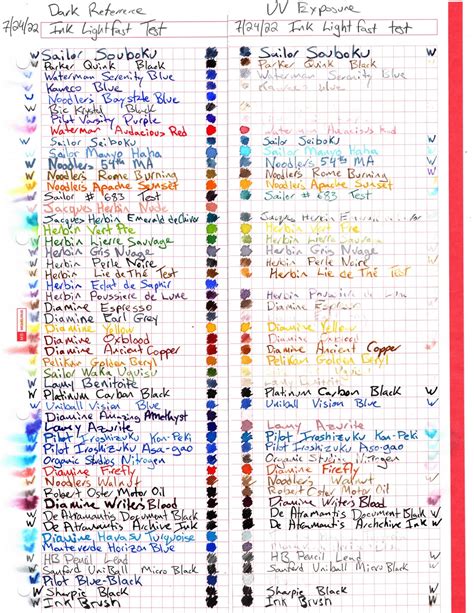 Dark Reference
7/24/22 Ink Lightfast Test
W Sailor Souboku
Parker Quink Black
Waterman Serenity Blue
Kaweco Blue
Noodlers Baystate Blue
W Bic Krystal Black
Pilot Varsity Purple
Waterman Audacious Red
W Sailor Seiboku
Sailor Manyo Haha
Noodlers 54th MA
Noodlers Rome Burning
Noodlers Apache Sunset
Sailor # 633 Test
Jacques Herbin
Jacques Herbin Emerald de Chivor
Herbin Vert Pre
Herbin Lierre Sauvage
Herbin Gris Nuage
Herbin Perle Noire
Herbin Lie de Thé Test
Herbin Eclat de Saphir
Herbin Poussiere de Lune
Diamine Espresso
Diamine Earl Grey
Diamine Yellow
Diamine Oxblood
Diamine Ancient Copper
Pelikan Golden Beryl
Sailor Waka Uguisu
Lamy Benitoite
W Platinum Carbon Black
W Uniball Vision Blue
Diamine Amazing Amethyst
Lamy Azurite
Pilot Iroshizuku Kon-Peki
Pilot Iroshizuku Asa-gao
Organic Studios Nitrogen
Diamine Firefly
Noodlers Walnut
Robert Oster Motor Oil
Diamine Writers Blood
W De Atramantis Document Black
W De Atramantis Archive Ink
Diamine Havasu Turquoise
Monteverde Horizon Blue
W HB Pencil Lead
W Sanford Uniball Micro Black
Pilot Blue-Black
W Sharpie Black
Ink Brush
UV Exposure
7/24/22 Ink Lightfast test
W Sailor Souboku
Parker Quink Black
Waterman Serenity Blue
Kaweco blue
Waterman Audacious Red
Sailor Seiboku W
Sailor Manyo Haha
Noodlers 54th MA
Noodlers Rome Burning W
Noodlers Apache Sunset
Sailor # 633 Test
Jacques Herbin
Herbin Vert Pre
Herbin Lierre Sauvage
Herbin Gris Nuage
Herbin Perle Noire
Herbin Lie de Thé Test
Herbin
Diamine
Diamine
Diamine Yellow
Diamine
Diamine Ancient Copper
Pelikan Golden Beryl
Platinum Carbon Black W
Uniball Vision Blue W
Lamy Azurite
Pilot Iroshizuku Kon-Peki
Pilot Iroshizuku Asa-gao
Organic
Diamine Firefly
Noodlers Walnut
Robert Oster Motor Oil
Diamine Writers Blood
De Atramantis Document Black W
De Atramantis Archchive Ink W
HB Pencil Lead W
Sanford Uniball Micro Black W
Sharpie Black W
Ink Brush W